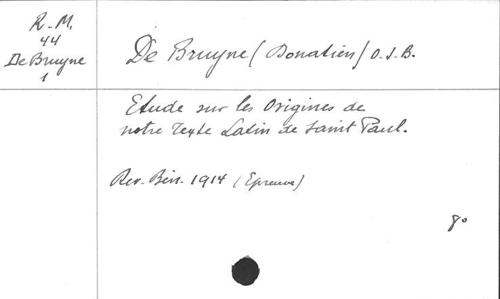 R. M.
44
De Bruyne
1
De Bruyne (Donatien) O.S.B.
Etude sur les Origines de
notre Texte Latin de Saint Paul.
Rev. Bén. 1914 (Epreuve)
8°